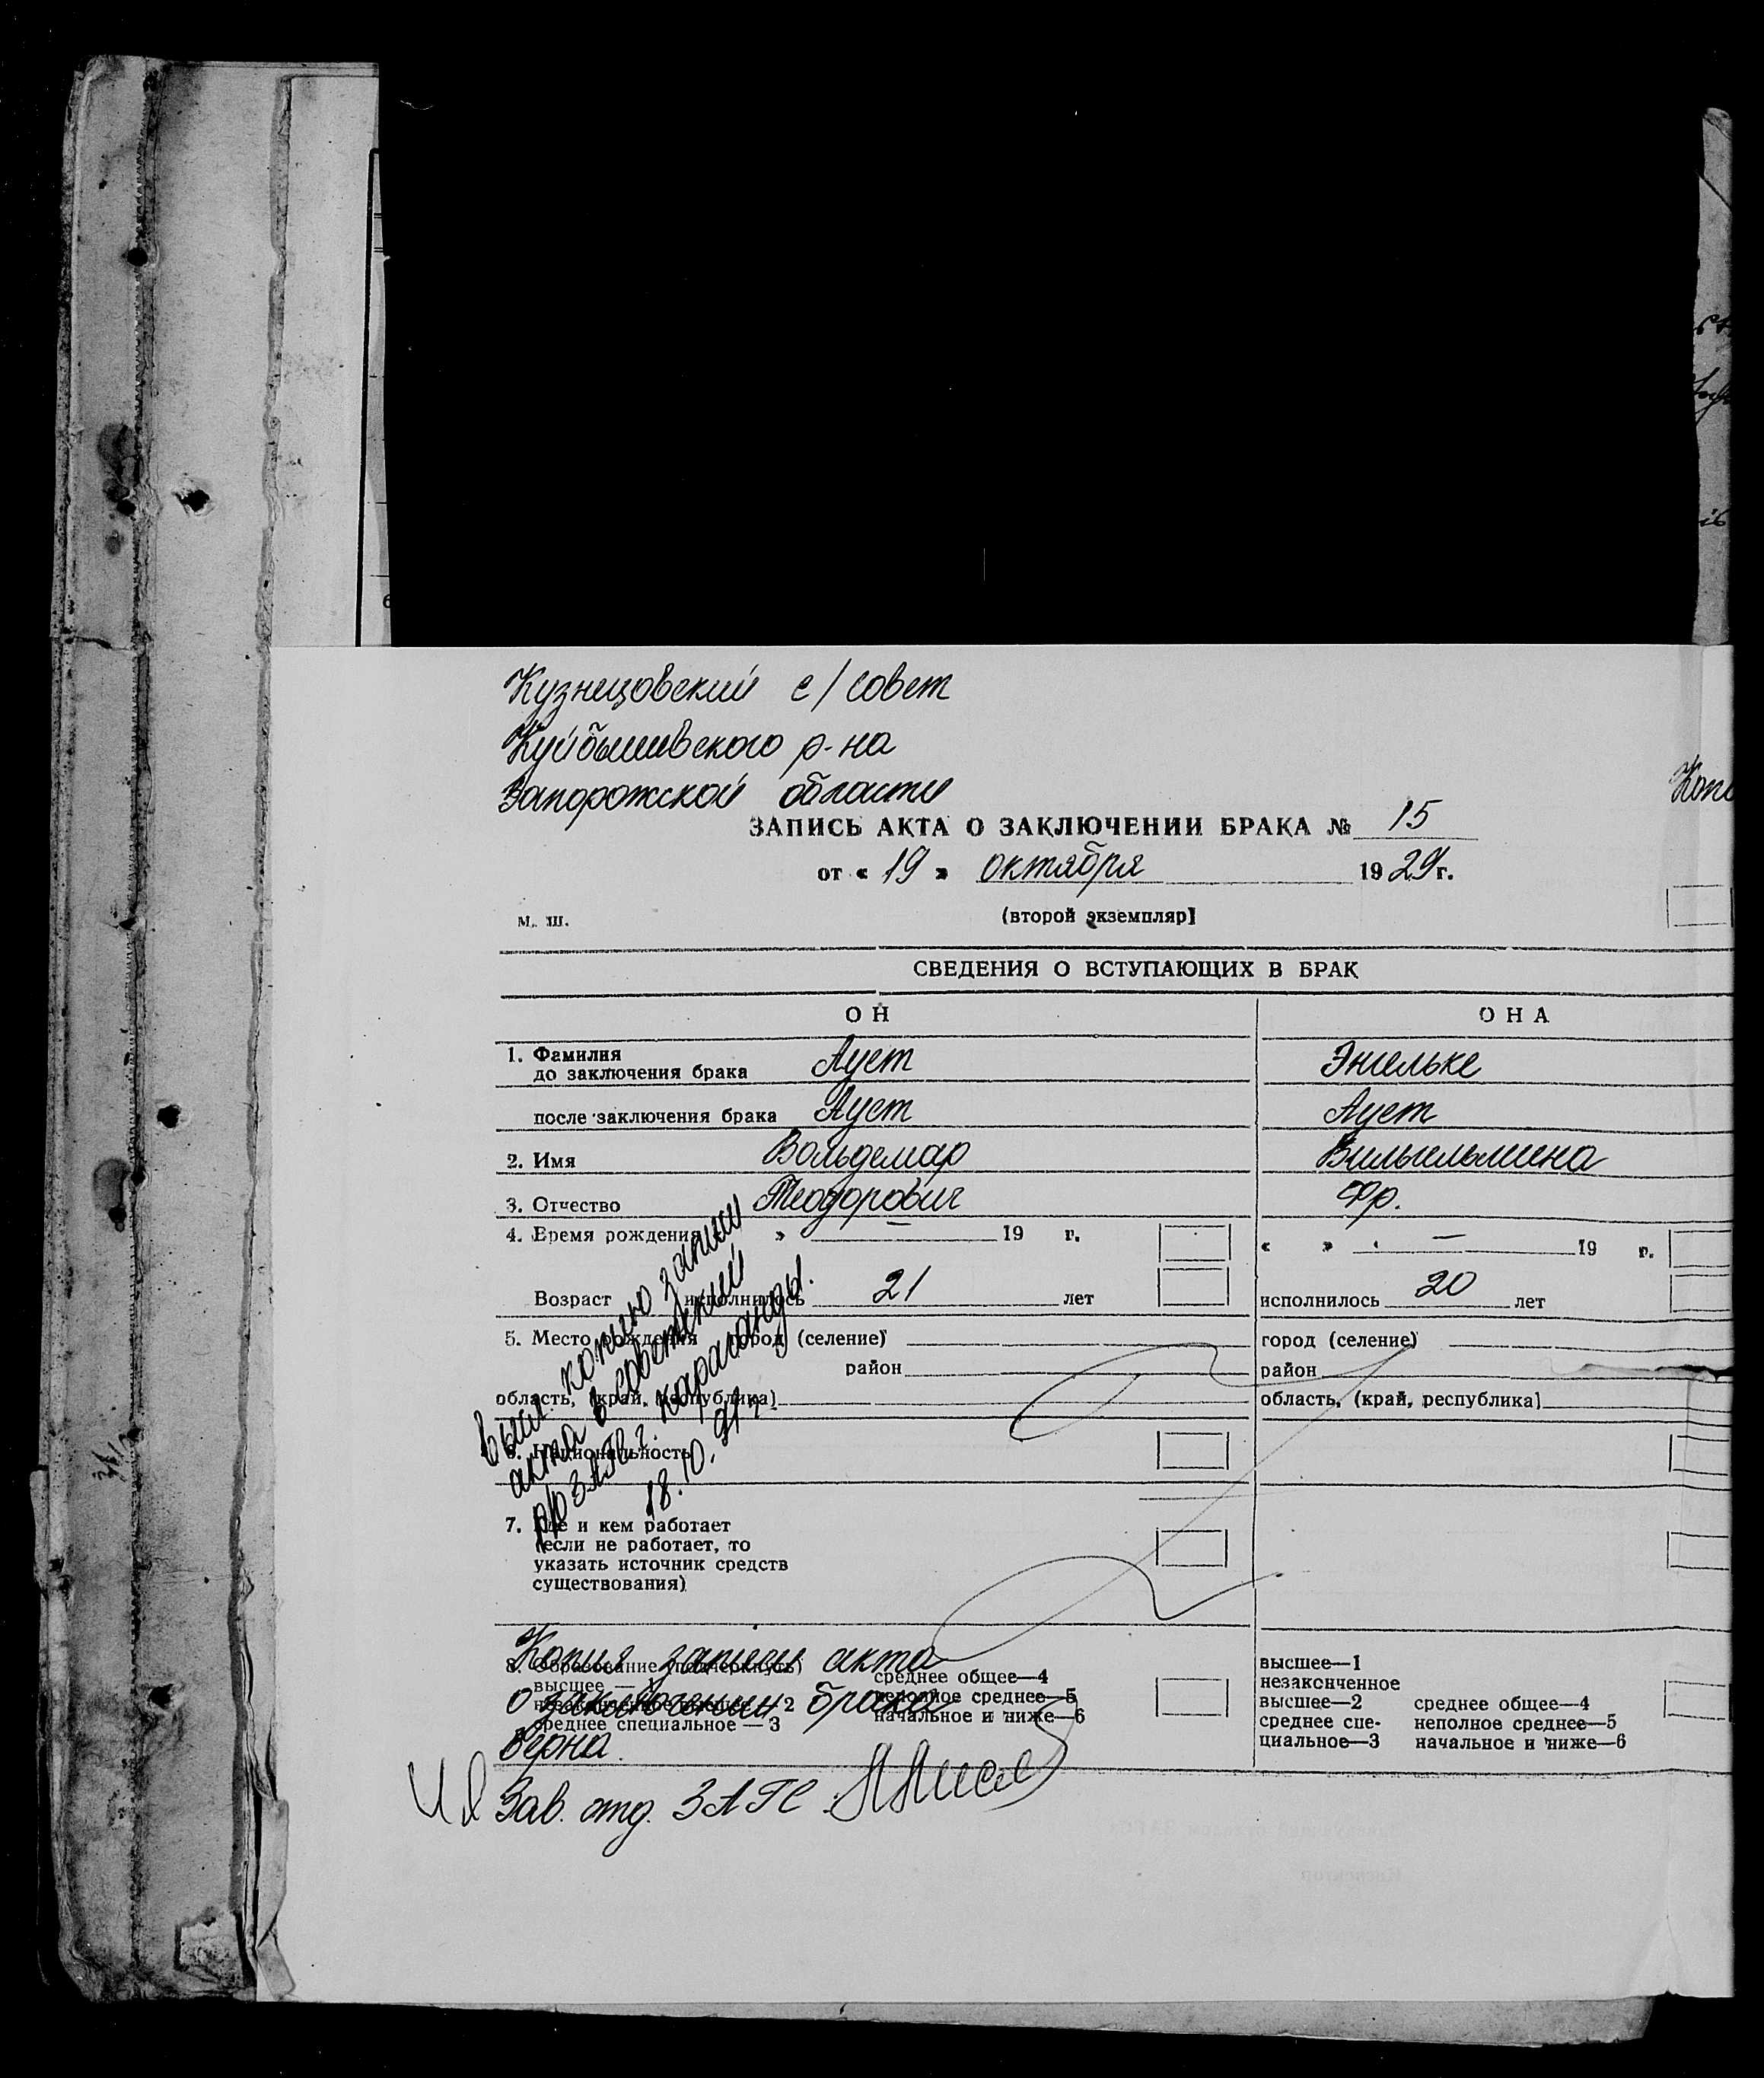 Кузнецовский с/совет
Куйбышевского р-на
Запорожской области
Копи
ЗАПИСЬ АКТА О ЗАКЛЮЧЕНИИ БРАКА № 15
от « 19 » октября 1929 г.
м. ш. (второй экземпляр)
СВЕДЕНИЯ О ВСТУПАЮЩИХ В БРАК
ОН ОНА
1. Фамилия до заключения брака Ауст Энгельке
после заключения брака Ауст Ауст
2. Имя Вольдемар Вильгельмина
3. Отчество Теодорович Фр.
4. Время рождения » — 19 г. « » — 19 г.
Возраст исполнилось 21 лет исполнилось 20 лет
5. Место рождения город (селение) город (селение)
район район
область, (край, республика) область, (край, республика)
6. Национальность
7. Где и кем работает
(если не работает, то
указать источник средств
существования)
8. Образование (подчеркнуть) среднее общее—4 высшее—1
высшее — неполное среднее—5 незаконченное
незаконченное высшее — 2 начальное и ниже—6 высшее—2 среднее общее—4
среднее специальное — 3 среднее спе- неполное среднее—5
циальное—3 начальное и ниже—6
выс. копию записи
акта в Советский
р/о ЗАГС г. Караганды.
18.10.91г.
Копия записи акта
о заключении брака
верна.
Зав. отд. ЗАГС